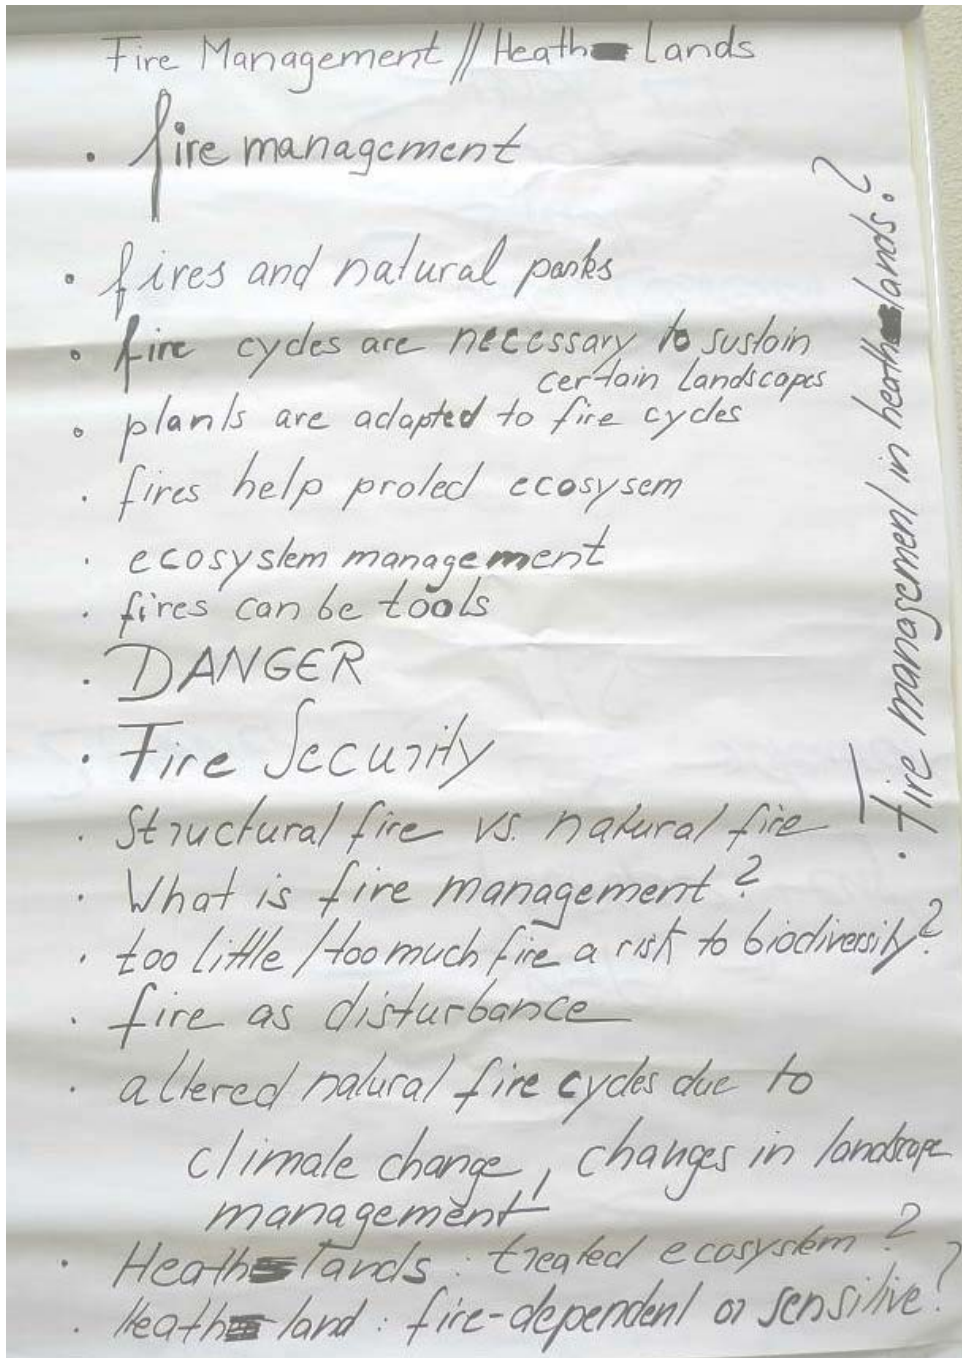 Fire Management // Heath lands
• fire management
• fires and natural parks
• fire cycles are necessary to sustain
certain landscapes
• plants are adapted to fire cycles
• fires help protect ecosysem
• ecosystem management
• fires can be tools
• DANGER
• Fire Security
• Structural fire vs. natural fire
• What is fire management?
• too little / too much fire a risk to biodiversity?
• fire as disturbance
• altered natural fire cycles due to
climate change, changes in landscape
management
• Heath lands : treated ecosystem?
• Heath land : fire-dependent or sensitive?
• Fire management in heath lands?